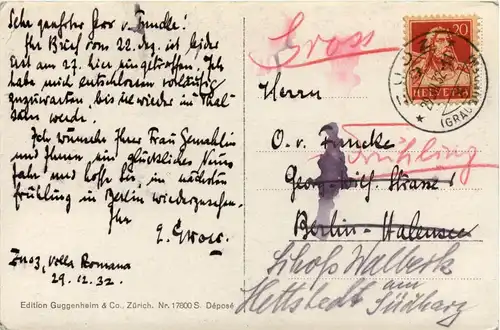 Sehr geehrter Herr v. Funcke!
Ihr Buch vom 22. dez. ist leider
erst am 27. hier eingetroffen. Ich
habe mich entschlossen vorläufig
zuzuwarten, bis Sie wieder in
sein werde.
Ich wünsche Ihrer Frau Gemahlin
und Ihnen, ein glückliches Neues
Jahr und hoffe Sie, im nächsten
Frühling in Berlin wiederzusehen.
Ihr
Zuoz, Villa Romana
29.12.32.
Edition Guggenheim & Co., Zürich. Nr. 17800 S. Déposé
Gross
20
HELVETIA
ZUOZ
(GRAUBÜNDEN)
Herrn
O. v. Funcke
Frühling
Georg-Wilh. Strasse
Berlin-Halensee
Schloss Walbeck
Hettstedt am
Südharz